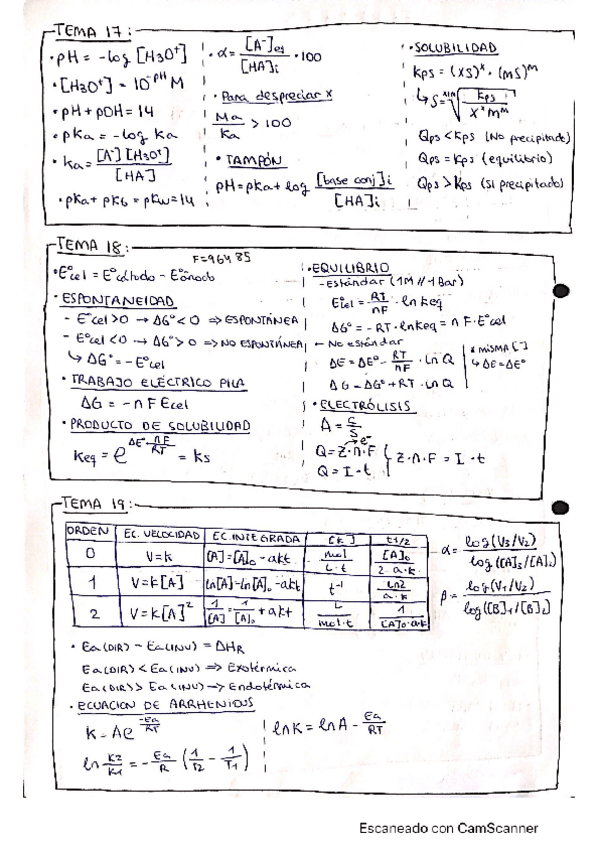 TEMA 17:
·pH = -log [H3O+]
·[H3O+] = 10^-pH M
·pH + pOH = 14
·pKa = -log Ka
·Ka = [A-][H3O+] / [HA]
·pKa + pKb = pKw = 14
·α = [A-]eq / [HA]i · 100
·Para despreciar x
Ma / Ka > 100
·TAMPÓN
pH = pKa + log [base conj]i / [HA]i
·SOLUBILIDAD
Kps = (XS)^x · (MS)^m
↳ S = ^x+m√(Kps / X^x M^m)
Qps < Kps (No precipitado)
Qps = Kps (equilibrio)
Qps > Kps (SI precipitado)
TEMA 18:
F=96485
·E°cel = E°cátodo - E°ánodo
·ESPONTANEIDAD
- E°cel > 0 → ΔG° < 0 ⇒ ESPONTÁNEA
- E°cel < 0 → ΔG° > 0 ⇒ NO ESPONTÁNEA
↳ ΔG° = - E°cel
·TRABAJO ELÉCTRICO PILA
ΔG = -nFEcel
·PRODUCTO DE SOLUBILIDAD
Keq = e^(ΔE° · nF/RT) = Ks
·EQUILIBRIO
-Estándar (1M // 1Bar)
E°cel = RT/nF · ln Keq
ΔG° = -RT · lnKeq = nF·E°cel
- No estándar
ΔE = ΔE° - RT/nF · Ln Q
* misma [ ]
↳ ΔE = ΔE°
ΔG = ΔG° + RT · Ln Q
·ELECTRÓLISIS
A = C/S
e-
Q = Z·n·F
Q = I·t
Z·n·F = I·t
TEMA 19:
ORDEN | EC. VELOCIDAD | EC. INTEGRADA | [K] | t1/2
0 | V=K | [A]=[A]0 - akt | mol / L·t | [A]0 / 2·a·k
1 | V=K[A] | Ln[A]=Ln[A]0 - akt | t^-1 | Ln2 / a·k
2 | V=K[A]^2 | 1/[A] = 1/[A]0 + akt | L / mol·t | 1 / [A]0·ak
α = log(V3/V2) / log([A]3/[A]2)
β = log(V1/V2) / log([B]1/[B]2)
·Ea(DIR) - Ea(INV) = ΔHR
Ea(DIR) < Ea(INV) ⇒ Exotérmica
Ea(DIR) > Ea(INV) → Endotérmica
·ECUACION DE ARRHENIUS
K = Ae^(-Ea/RT)
lnK = lnA - Ea/RT
ln K2/K1 = - Ea/R (1/T2 - 1/T1)
Escaneado con CamScanner